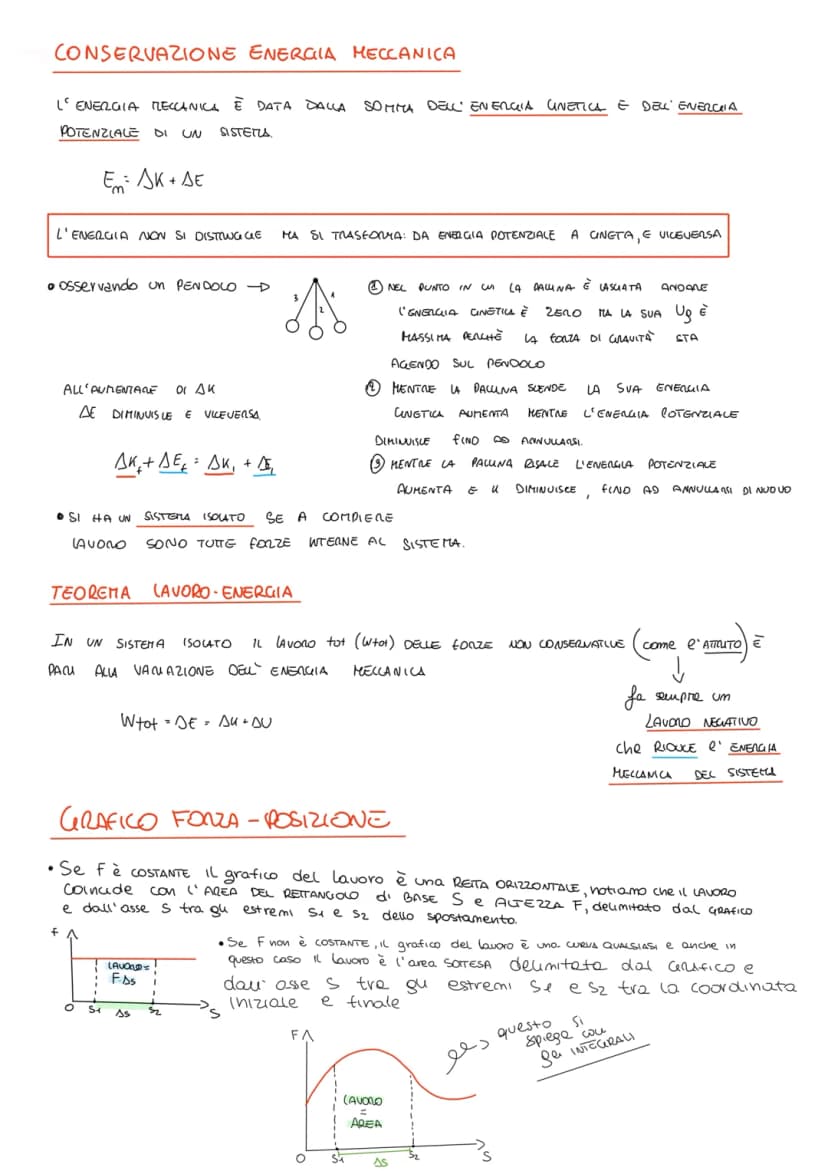 CONSERVAZIONE ENERGIA MECCANICA
L'ENERGIA MECCANICA È DATA DALLA SOMMA DELL'ENERGIA CINETICA E DELL'ENERGIA
POTENZIALE DI UN SISTEMA.
Em = ΔK + ΔE
L'ENERGIA NON SI DISTRUGGE MA SI TRASFORMA: DA ENERGIA POTENZIALE A CINETA, E VICEVERSA
• osservando un PENDOLO →
3 2 1
① NEL PUNTO IN CUI LA PALLINA È LASCIATA ANDARE
L'ENERGIA CINETICA È ZERO MA LA SUA Ug È
MASSIMA PERCHÈ LA FORZA DI GRAVITÀ STA
AGENDO SUL PENDOLO
ALL'AUMENTARE DI ΔK
ΔE DIMINUISCE E VICEVERSA
② MENTRE LA PALLINA SCENDE LA SUA ENERGIA
CINETICA AUMENTA MENTRE L'ENERGIA POTENZIALE
DIMINUISCE FINO AD ANNULLARSI.
ΔKf + ΔEf = ΔKi + ΔEi
③ MENTRE LA PALLINA RISALE L'ENERGIA POTENZIALE
AUMENTA E K DIMINUISCE, FINO AD ANNULLARSI DI NUOVO
• SI HA UN SISTEMA ISOLATO SE A COMPIERE
LAVORO SONO TUTTE FORZE INTERNE AL SISTEMA.
TEOREMA LAVORO-ENERGIA
IN UN SISTEMA ISOLATO IL LAVORO tot (Wtot) DELLE FORZE NON CONSERVATIVE (come l'ATTRITO) È
PARI ALLA VARIAZIONE DELL'ENERGIA MECCANICA
Wtot = ΔE = ΔK + ΔU
fa sempre un
LAVORO NEGATIVO
che RIDUCE l'ENERGIA
MECCANICA DEL SISTEMA
GRAFICO FORZA - POSIZIONE
• Se F è COSTANTE il grafico del lavoro è una RETTA ORIZZONTALE, notiamo che il LAVORO
Coincide con l'AREA DEL RETTANGOLO di BASE S e ALTEZZA F, delimitato dal GRAFICO
e dall'asse S tra gli estremi S1 e S2 dello spostamento.
F
LAVORO =
FΔs
O S1 Δs S2 S
• Se F non è COSTANTE, il grafico del lavoro è una CURVA QUALSIASI e anche in
questo caso il lavoro è l'area SOTTESA delimitata dal GRAFICO e
dall'asse S tra gli estremi S1 e S2 tra la coordinata
iniziale e finale
questo si
spiega con
gli INTEGRALI
F
LAVORO
=
AREA
O S1 Δs S2 S